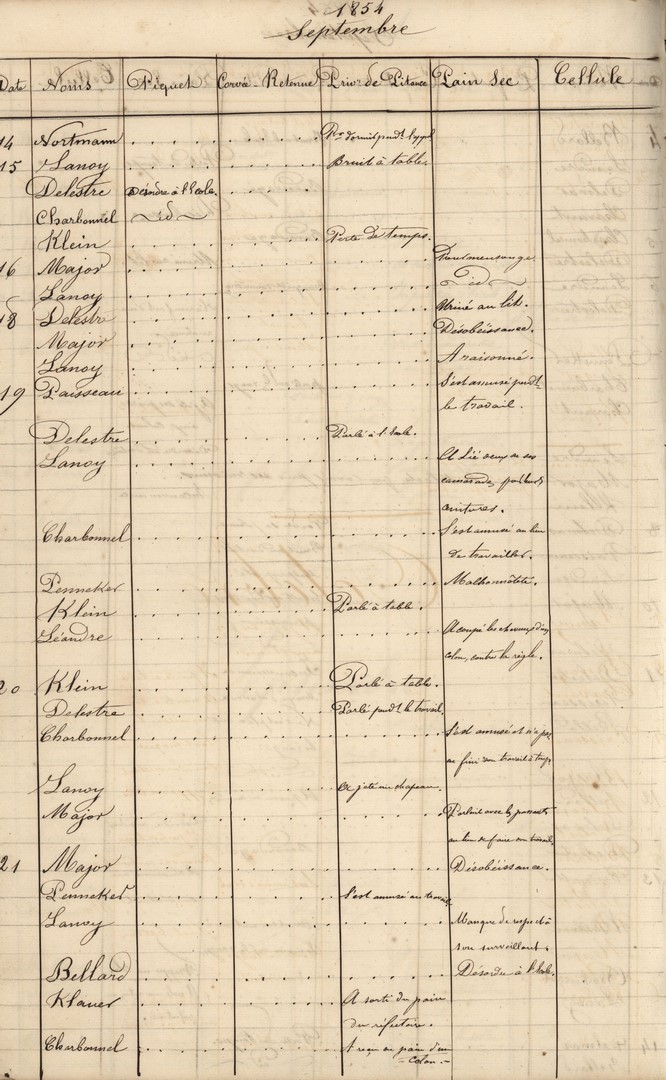 1854
Septembre
Date Noms Piquet Corvée Retenue Priv.on de Pitance Pain Sec Cellule
14 Nortmann dormir pend.t l'appel
15 Lanoy Bruit à table.
Delestre Désordre à l'école.
Charbonnel id
Klein Perte de temps.
16 Major Pour mensonge
Lanoy id
18 Delestre Uriné au lit.
Major Désobéissance.
Lanoy A raisonné.
19 Paisseau S'est amusé pend.t
le travail.
Delestre Parlé à l'école.
Lanoy A lié deux de ses
camarades, par leurs
ceintures.
Charbonnel S'est amusé au lieu
de travailler.
Penneker Malhonnêteté.
Klein Parlé à table.
Léandre A coupé les cheveux d'un
colon, contre la règle.
20 Klein Parlé à table.
Delestre Parlé pend.t le travail.
Charbonnel S'est amusé et n'a pas
fini son travail à temps
Lanoy A jeté un chapeau.
Major Parlait avec les passants
au lieu de faire son travail.
21 Major Désobéissance.
Penneker S'est amusé au travail
Lanoy Manque de respect à
son surveillant.
Bellard Désordre à l'école.
Klauer A sorti du pain
du réfectoire.
Charbonnel A reçu un pain d'un
colon.